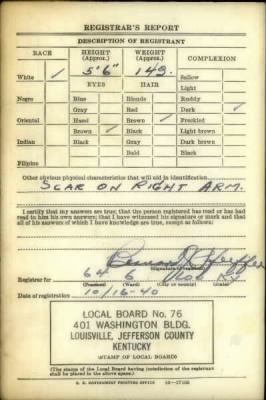 REGISTRAR'S REPORT
DESCRIPTION OF REGISTRANT
RACE
HEIGHT (Approx.)
WEIGHT (Approx.)
COMPLEXION
White ✓
5'6"
149.
Sallow
EYES
HAIR
Light
Negro
Blue
Blonde
Ruddy
Gray
Red
Dark ✓
Oriental
Hazel
Brown ✓
Freckled
Brown ✓
Black
Light brown
Indian
Black
Gray
Dark brown
Bald
Black
Filipino
Other obvious physical characteristics that will aid in identification
SCAR ON RIGHT ARM.
I certify that my answers are true; that the person registered has read or has had
read to him his own answers; that I have witnessed his signature or mark and that
all of his answers of which I have knowledge are true, except as follows:
Registrar for 64 6 Ky
(Precinct) (Ward) (City or county) (State)
Date of registration 10/16-40
LOCAL BOARD No. 76
401 WASHINGTON BLDG.
LOUISVILLE, JEFFERSON COUNTY
KENTUCKY
(STAMP OF LOCAL BOARD)
(The stamp of the Local Board having jurisdiction of the registrant
shall be placed in the above space.)
U. S. GOVERNMENT PRINTING OFFICE 16—17105